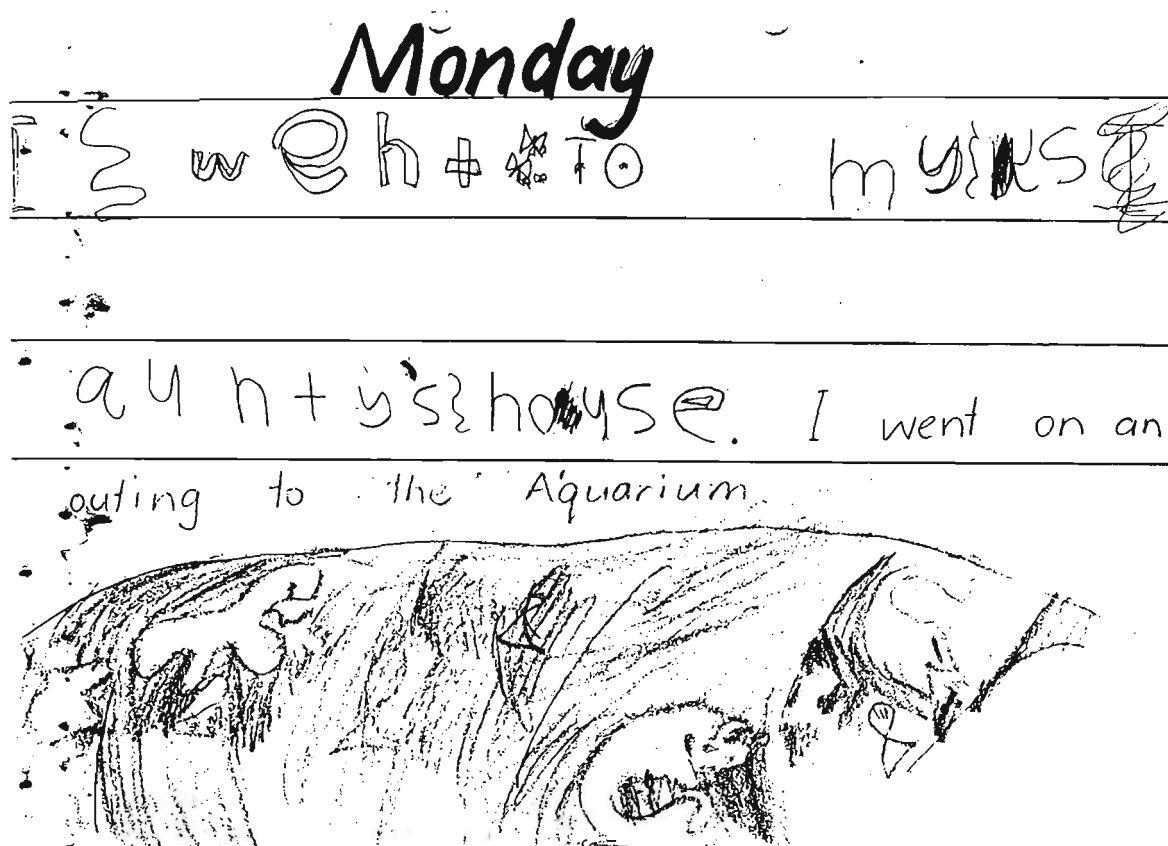 Monday
I went to my
aunty's house. I went on an
outing to the Aquarium